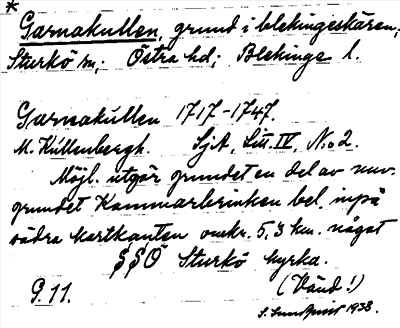 *
Garnakullen, grund i blekingeskären;
Sturkö sn; Östra hd; Blekinge l.
Garnakullen 1717-1747.
M. Kullenbergh. SjA, Litt. IV, No 2.
Möjl. utgör grundet en del av nuv.
grundet Kammarbrinken bel. inpå
södra kartkanten omkr. 5,3 km. något
S S Ö Sturkö kyrka.
9.11. (Vänd!)
S. Lundquist 1938.